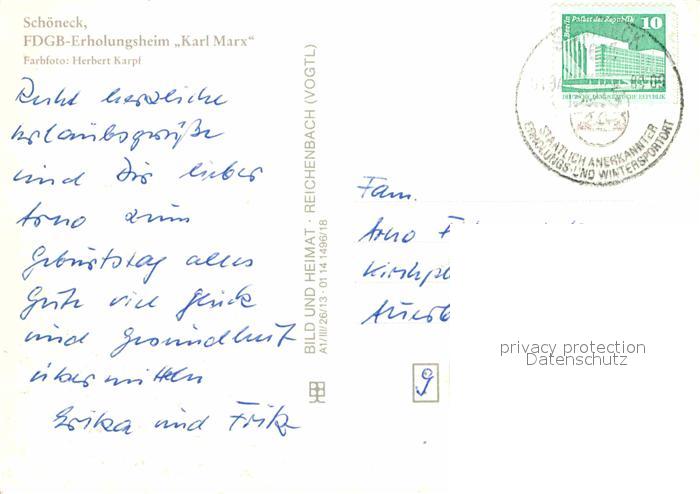 Schöneck,
FDGB-Erholungsheim „Karl Marx“
Farbfoto: Herbert Karpf
Recht herzliche
Urlaubsgrüße
und Dir lieber
Arno zum
Geburtstag alles
Gute viel Glück
und Gesundheit
übermitteln
Erika und Fritz
BILD UND HEIMAT · REICHENBACH (VOGTL)
A1/III/26/13 · 01 14 1496/18
Berlin Palast der Republik 10
DEUTSCHE DEMOKRATISCHE REPUBLIK
STAATLICH ANERKANNTER
ERHOLUNGS- UND WINTERSPORTORT
Fam.
Arno F
Kirchpl
Auerb
9
privacy protection
Datenschutz